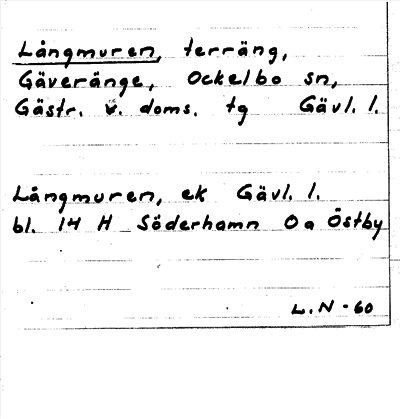 Långmuren, terräng,
Gäveränge, Ockelbo sn,
Gästr. v. doms. tg Gävl. l.
Långmuren, ek Gävl. l.
bl. 14 H Söderhamn 0a Östby
L.N - 60